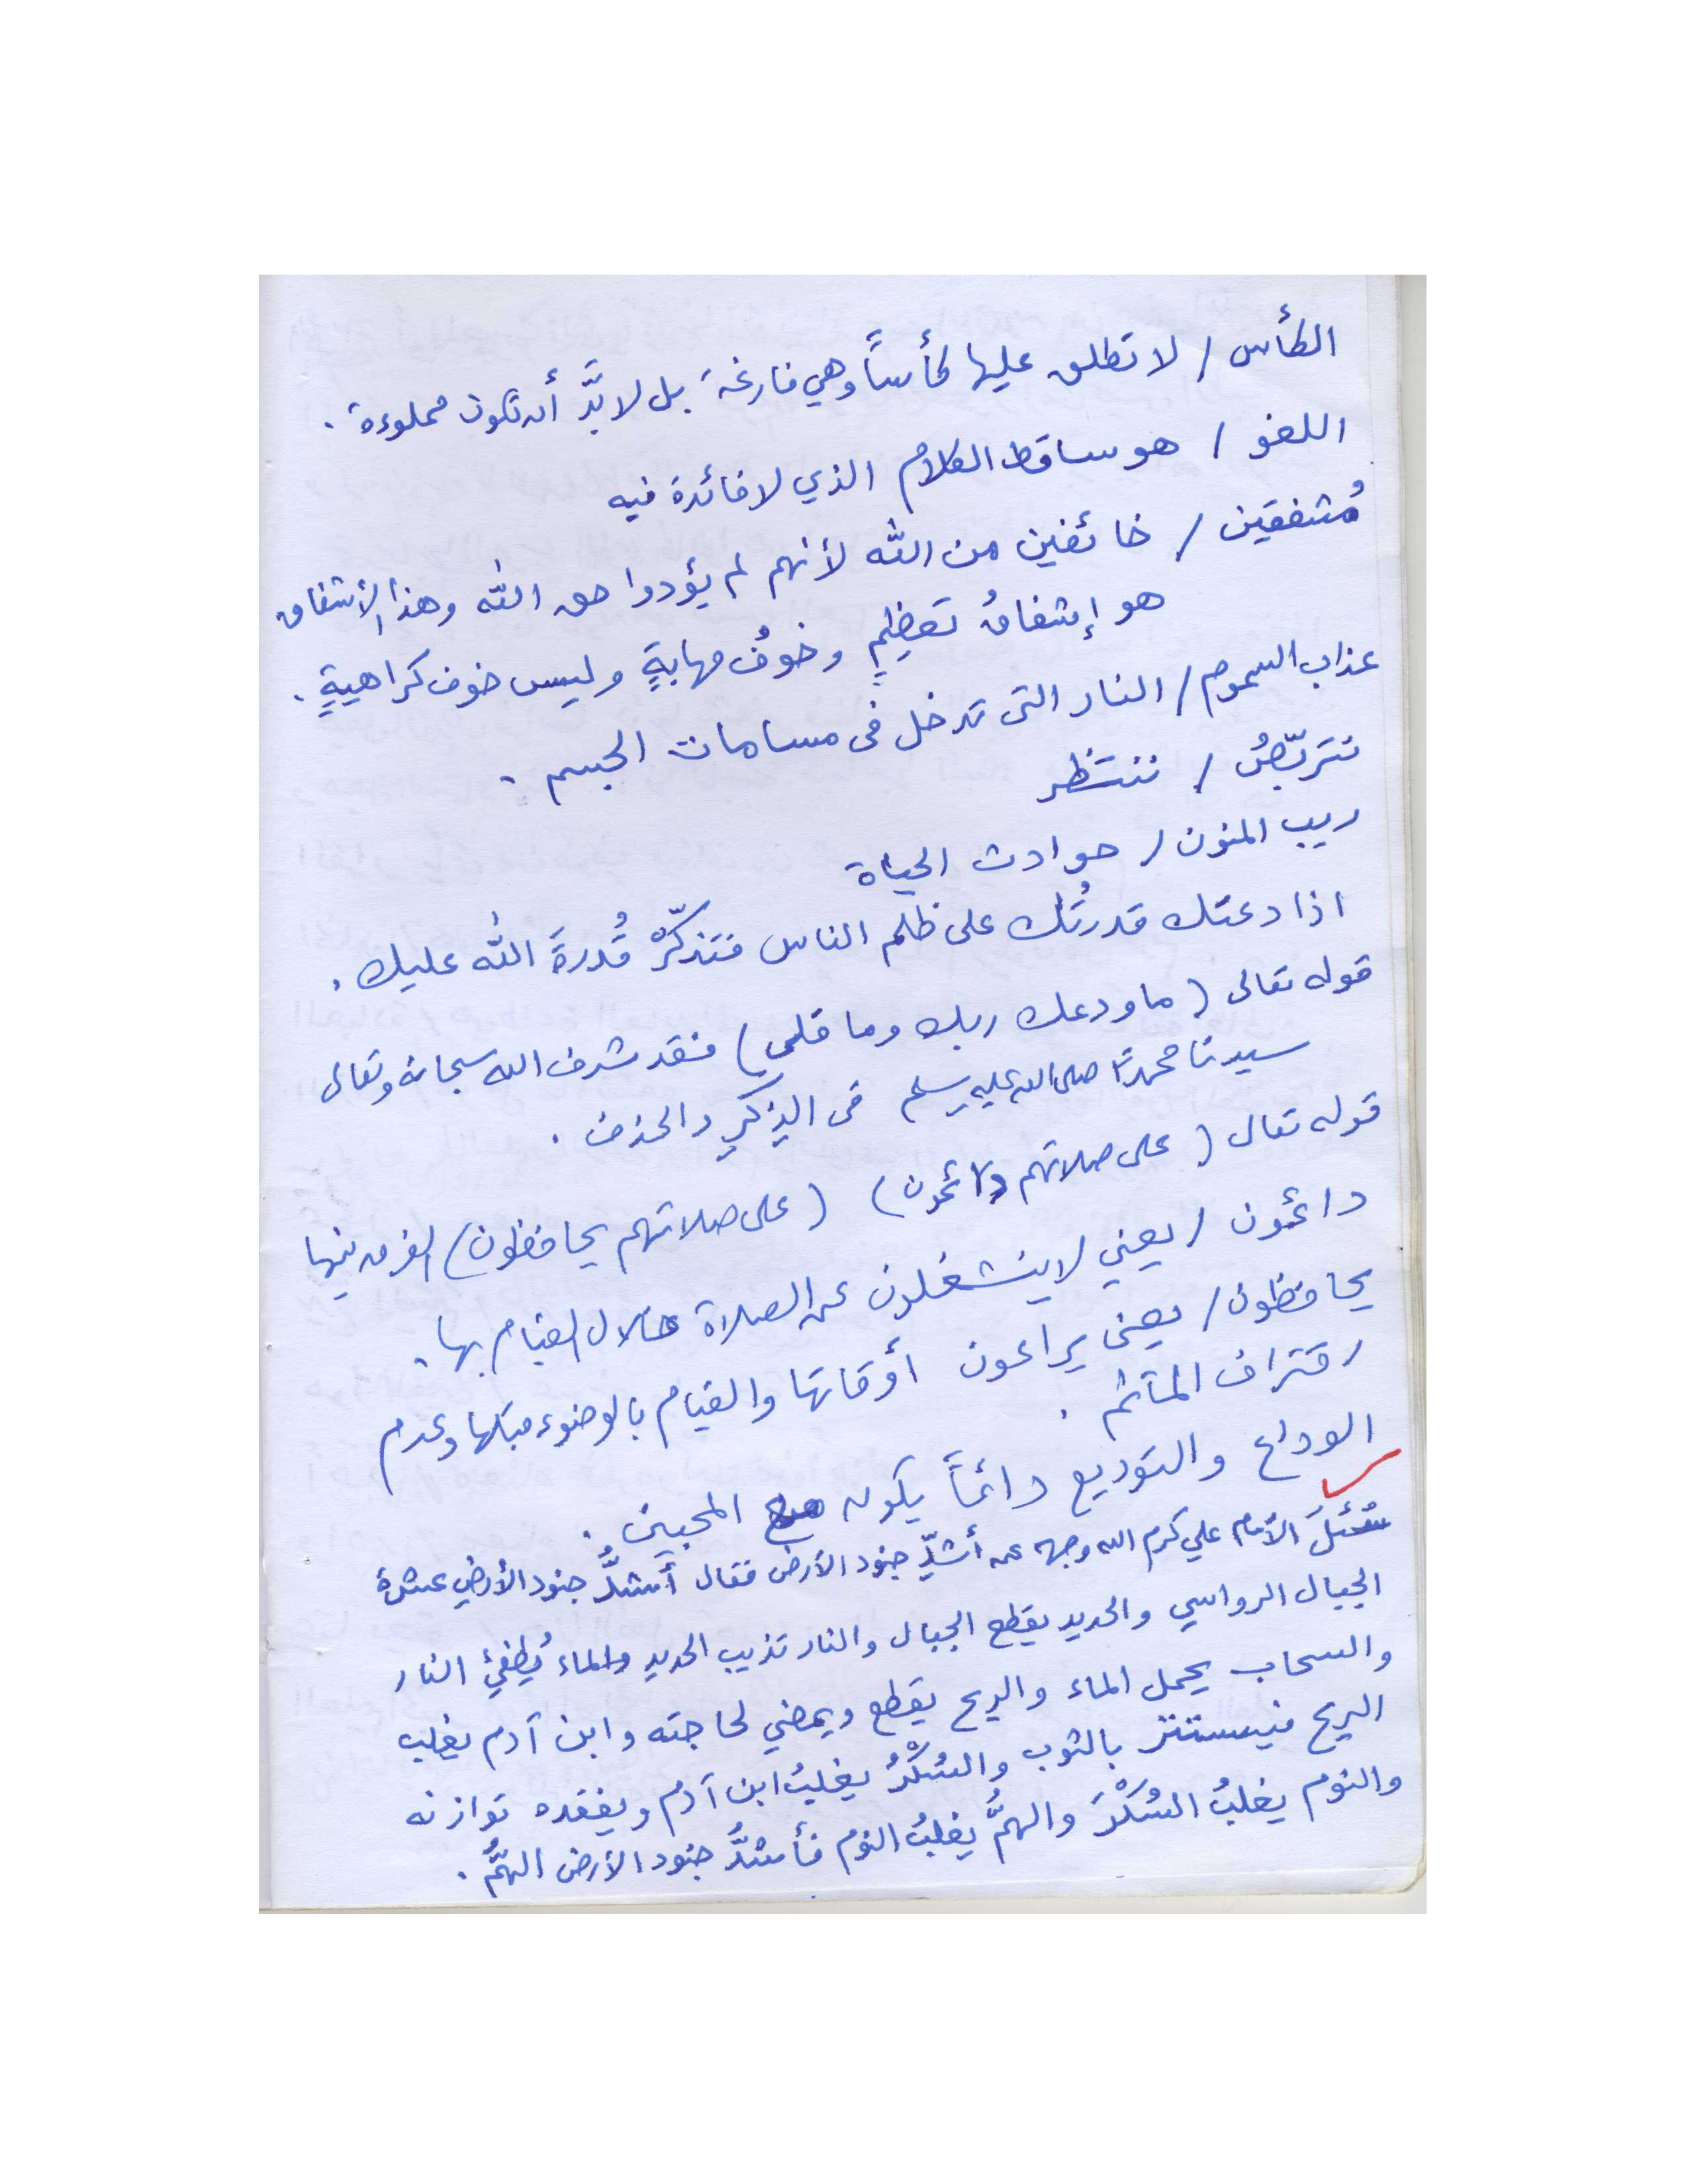 الكأس / لا تطلق عليها كأساً وهي فارغة بل لا بدَّ أن تكون مملوءة .
اللغو / هو ساقط الكلام الذي لا فائدة فيه
مُشفقين / خائفين من الله لأنهم لم يؤدوا حق الله وهذا الأشفاق
هو إشفاقُ تعظيمٍ وخوفُ مهابةٍ وليس خوف كراهيةٍ .
عذاب السموم / النار التى تدخل فى مسامات الجسم .
نتربّصُ / ننتظر
ريب المنون / حوادث الحياة
اذا دعتك قدرتُك على ظلم الناس فتذكّرْ قُدرةَ الله عليك .
قوله تعالى ( ما ودعك ربك وما قلى ) فقد شرف الله سبحانه وتعالى
سيدنا محمداً صلى الله عليه وسلم فى الذِكرِ والحذف .
قوله تعالى ( على صلاتهم دائمون ) ( على صلاتهم يحافظون ) الفرق بينها
دائمون / يعني لا ينشغلون عن الصلاة خلال القيام بها .
يحافظون / يعنى يراعون أوقاتها والقيام بالوضوء قبلها وعدم
اقتراف المآثم .
الوداع والتوديع دائماً يكون مع المحبين .
سُئلَ الأمام علي كرم الله وجهه عن أشدِّ جنود الأرض فقال أشدُّ جنود الأرضِ عشرة
الجبال الرواسي والحديد يقطع الجبال والنار تذيب الحديد والماء يُطفئ النار
والسحاب يحمل الماء والريح يقطع ويمضي لحاجته وابن آدم يغلب
الريح فيستتر بالثوب والسُكْرُ يغلبُ ابن آدم ويفقده توازنه
والنوم يغلبُ السُكْرَ والهمُّ يغلبُ النوم فأشدُّ جنود الأرض الهمُّ .